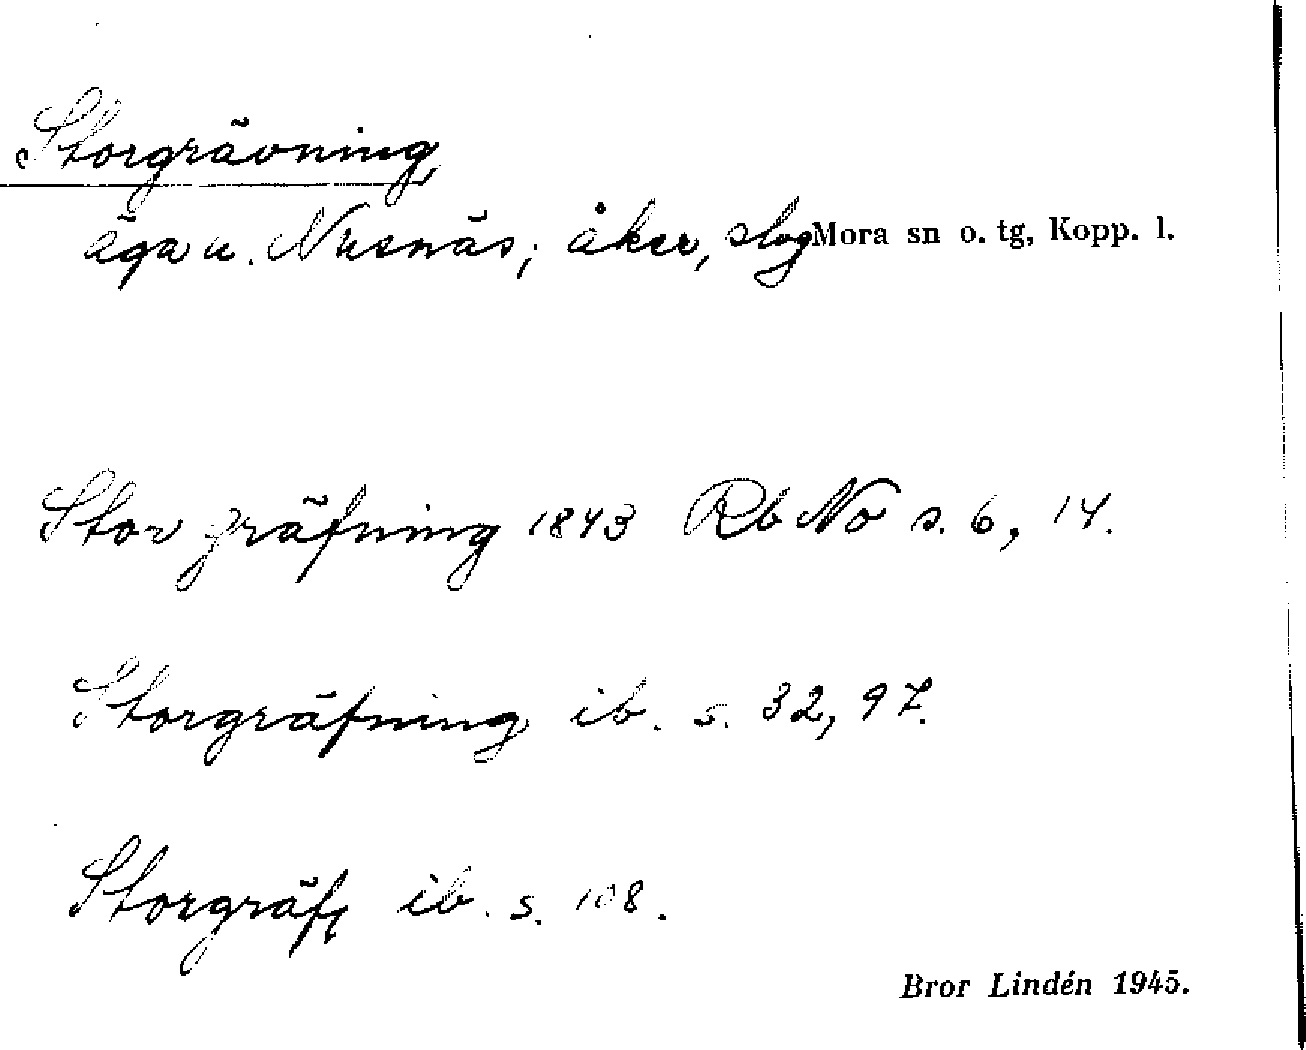 Storgrävning,
äga u. Nusnäs; åker, slog Mora sn o. tg, Kopp. l.
Stor gräfning 1843 Rb No s. 6, 14.
Storgräfning ib. s. 32, 97.
Storgräfg ib. s. 108.
Bror Lindén 1945.